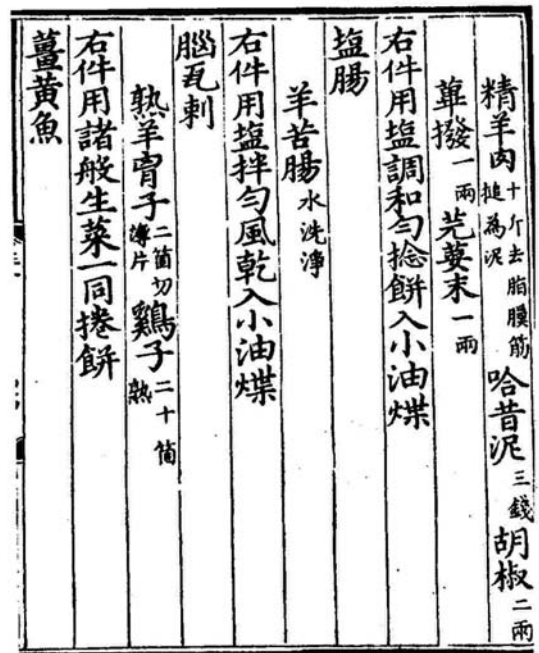 精羊肉十斤去脂膜筋搥為泥哈昔泥三錢胡椒二兩
蓽撥一兩芫荽末一兩
右件用塩調和勻捻餅入小油煠
塩腸
羊苦腸水洗淨
右件用塩拌勻風乾入小油煠
腦瓦剌
熟羊胷子二箇切薄片鷄子二十箇熟
右件用諸般生菜一同捲餅
薑黃魚